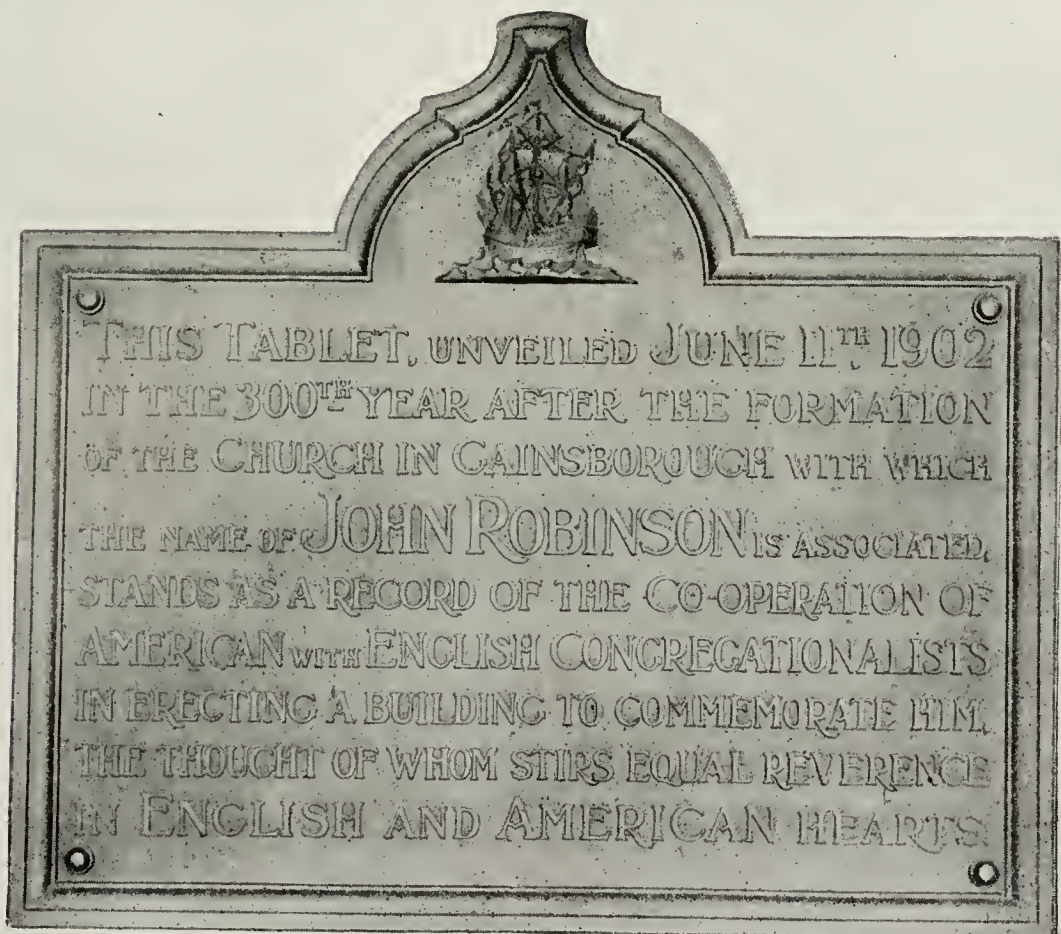 THIS TABLET, UNVEILED JUNE 11TH, 1902
IN THE 300TH YEAR AFTER THE FORMATION
OF THE CHURCH IN GAINSBOROUGH WITH WHICH
THE NAME OF JOHN ROBINSON IS ASSOCIATED,
STANDS AS A RECORD OF THE CO-OPERATION OF
AMERICAN WITH ENGLISH CONGREGATIONALISTS
IN ERECTING A BUILDING TO COMMEMORATE HIM,
THE THOUGHT OF WHOM STIRS EQUAL REVERENCE
IN ENGLISH AND AMERICAN HEARTS.